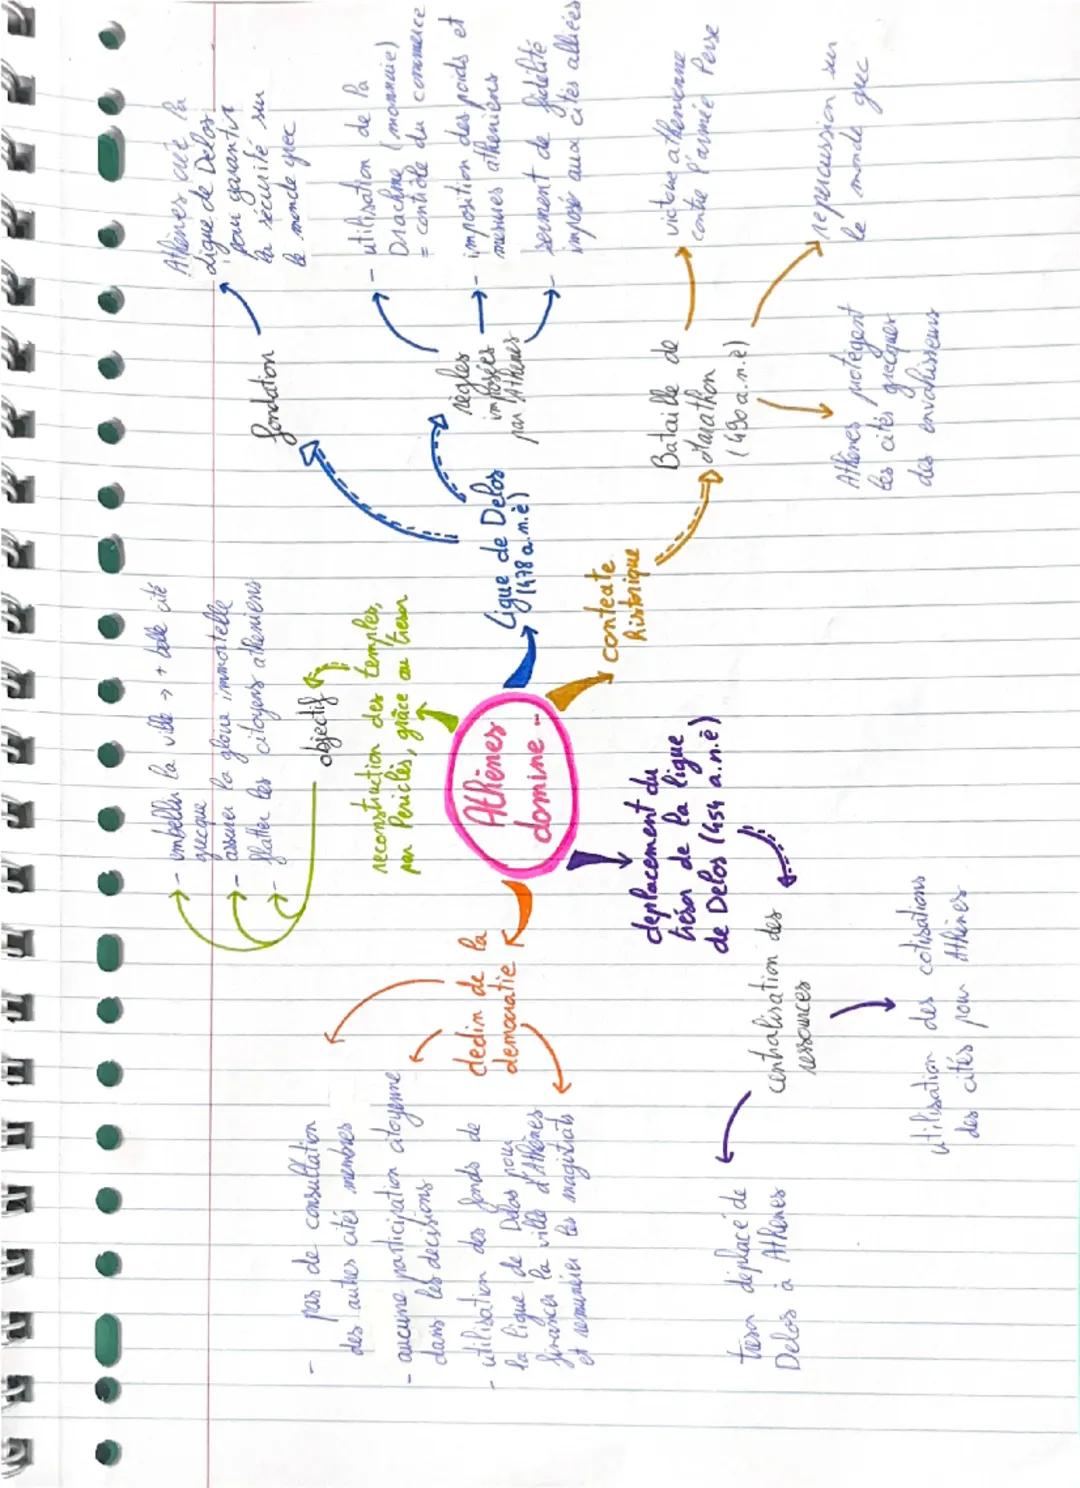 Athènes
domine ..
Ligue de Delos
(478 a.n.è)
fondation
Athènes crée la
Ligue de Delos
pour garantir
la sécurité sur
le monde grec
règles
imposées
par Athènes
- utilisation de la
Drachme (monnaie)
= contrôle du commerce
- imposition des poids et
mesures athéniens
- serment de fidélité
imposé aux cités alliées
contexte
historique
Bataille de
Marathon
(490 a.n.è)
victoire athenienne
contre l'armée Perse
repercussion sur
le monde grec
Athènes protègent
les cités grecques
des envahisseurs
deplacement du
trésor de la ligue
de Delos (454 a.n.è)
centralisation des
ressources
utilisation des cotisations
des cités pour Athènes
trésor déplacé de
Delos à Athènes
declin de la
democratie
- pas de consultation
des autres cités membres
- aucune participation citoyenne
dans les decisions
- utilisation des fonds de
la ligue de Delos pour
financer la ville d'Athènes
et remunérer les magistrats
reconstruction des temples,
par Periclès, grâce au tresor
objectif
- embellir la ville → + belle cité
grecque
- assurer la gloire immortelle
- flatter les citoyens atheniens